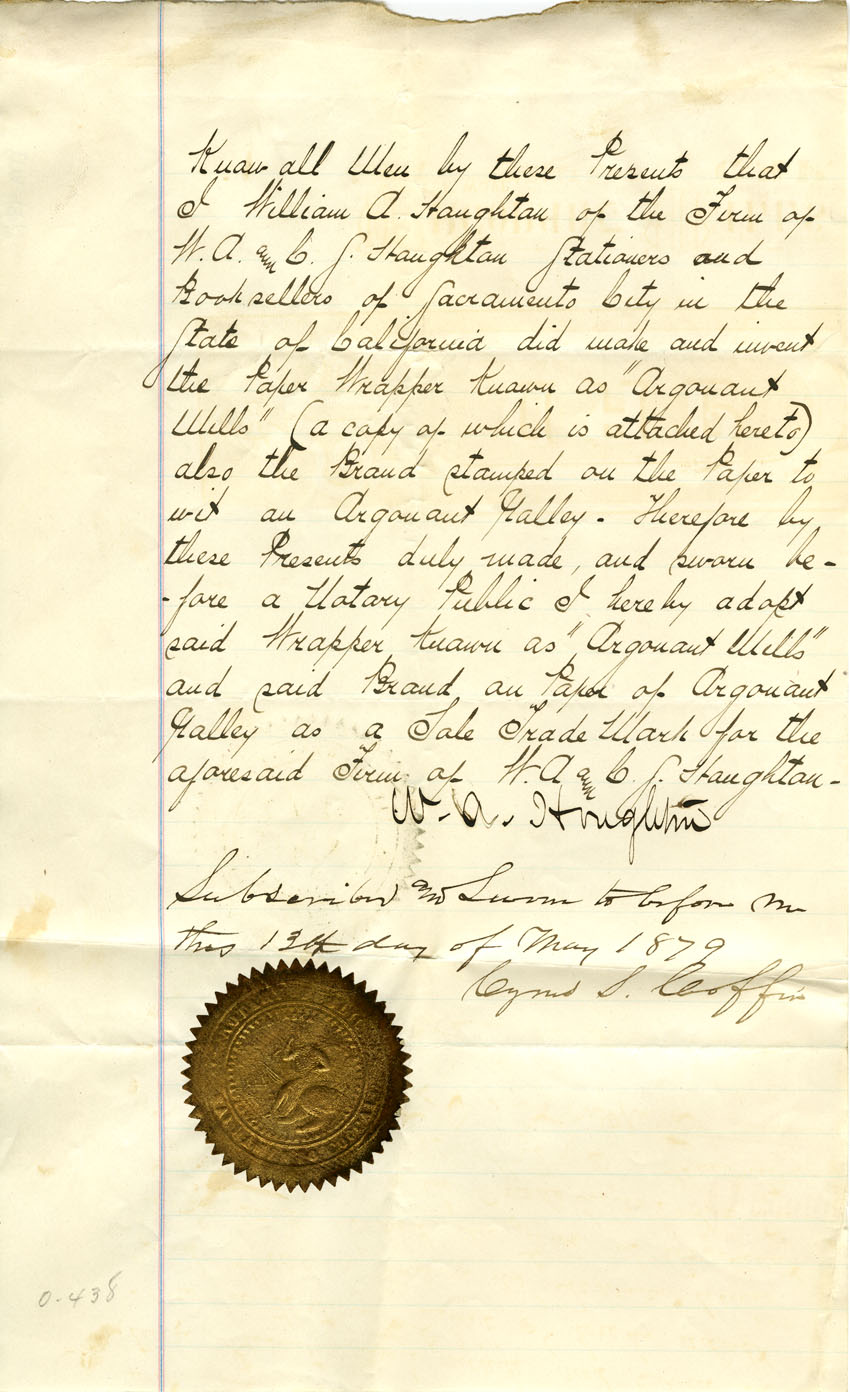 Know all Men by these Presents that
I William A. Houghton of the Firm of
W. A. and C. S. Houghton Stationers and
Booksellers of Sacramento City in the
State of California did make and invent
the Paper Wrapper Known as "Argonaut
Mills" (a copy of which is attached hereto)
also the Brand stamped on the Paper to
wit an Argonaut Galley - Therefore by
these Presents duly made, and sworn be-
-fore a Notary Public I hereby adopt
said Wrapper Known as "Argonaut Mills"
and said Brand on Paper of Argonaut
Galley as a Sole Trade Mark for the
aforesaid Firm of W. A and C. S. Houghton -
W. A. Houghton
Subscribed and Sworn to before me
this 13th day of May 1879
Cyrus S. Coffin
0-438